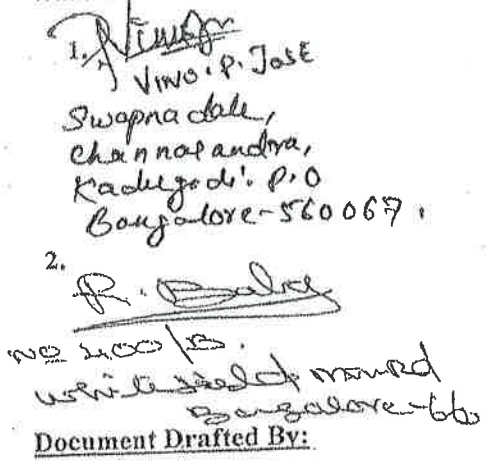 1.
VINO. P. JOSE
Swapna dale,
Channasandra,
Kadugodi. P.O
Bangalore-560067.
2.
R. Baby
NO 400/B.
Whitefield
Bangalore-66
Document Drafted By: